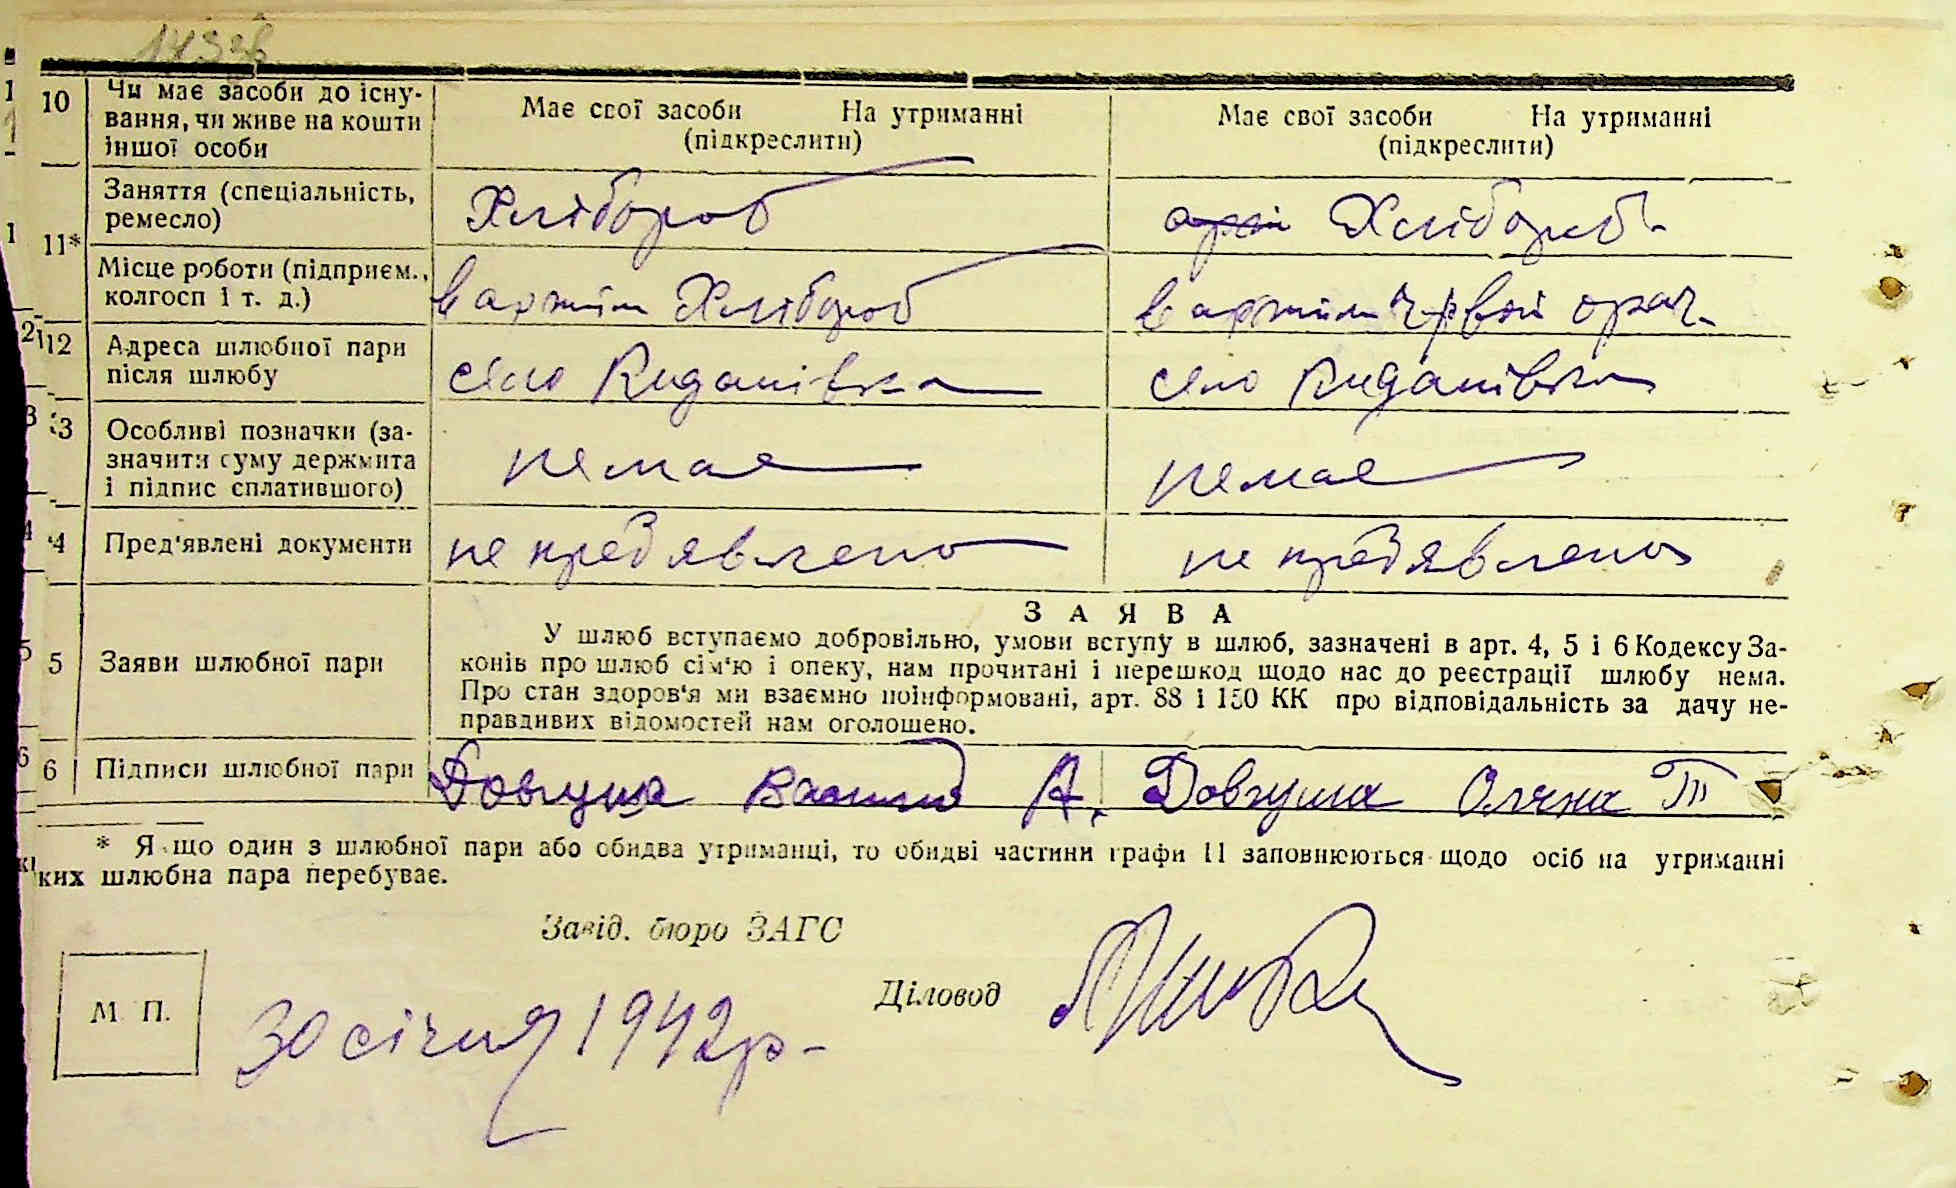 143зв
10 Чи має засоби до існу-
вання, чи живе на кошти
іншої особи
Має свої засоби На утриманні
(підкреслити)
Має свої засоби На утриманні
(підкреслити)
11*
Заняття (спеціальність,
ремесло)
Хлібороб
Хлібороб
Місце роботи (підприєм.,
колгосп і т. д.)
в артіли Хлібороб
в артіли Червой орач
12 Адреса шлюбної пари
після шлюбу
село Киданівка
село Киданівка
3 Особливі позначки (за-
значити суму держмита
і підпис сплатившого)
немае
немае
4 Пред'явлені документи
не предявлено
не предявлено
ЗАЯВА
5 Заяви шлюбної пари
У шлюб вступаємо добровільно, умови вступу в шлюб, зазначені в арт. 4, 5 і 6 Кодексу За-
конів про шлюб сім'ю і опеку, нам прочитані і перешкод щодо нас до реєстрації шлюбу нема.
Про стан здоров'я ми взаємно поінформовані, арт. 88 і 150 КК про відповідальність за дачу не-
правдивих відомостей нам оголошено.
6 Підписи шлюбної пари
Довгуша Василь А.
Довгуша Оляна Т
* Якщо один з шлюбної пари або обидва утриманці, то обидві частини графи 11 заповнюються щодо осіб на утриманні
ких шлюбна пара перебуває.
Завід. бюро ЗАГС
Діловод
М. П.
30 січня 1942 р-